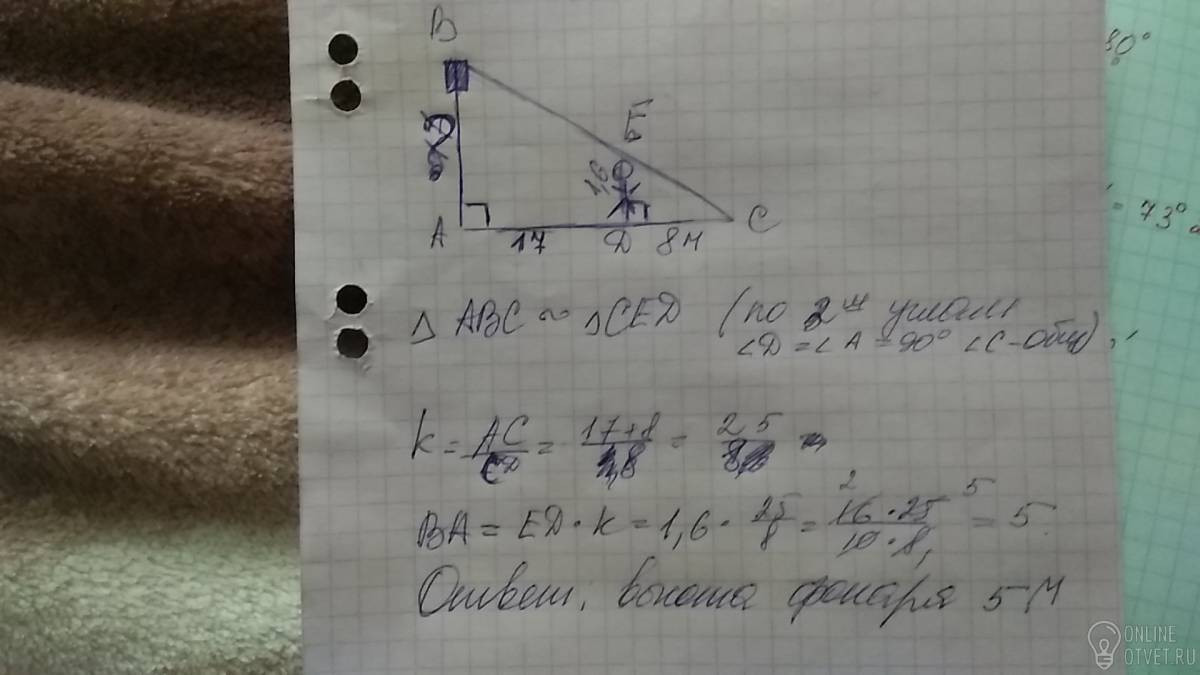 B
E
1,6
A 17 D 8м C
80°
= 73°
△ ABC ~ △CED (по 2м углам
∠D = ∠A = 90° ∠C - общ)
k = AC/CD = 17+8/8 = 25/8
BA = ED · k = 1,6 · 25/8 = 16 · 25/10 · 8 = 5
2 5 1
Ответ: высота фонаря 5м
ONLINE
OTVET.RU